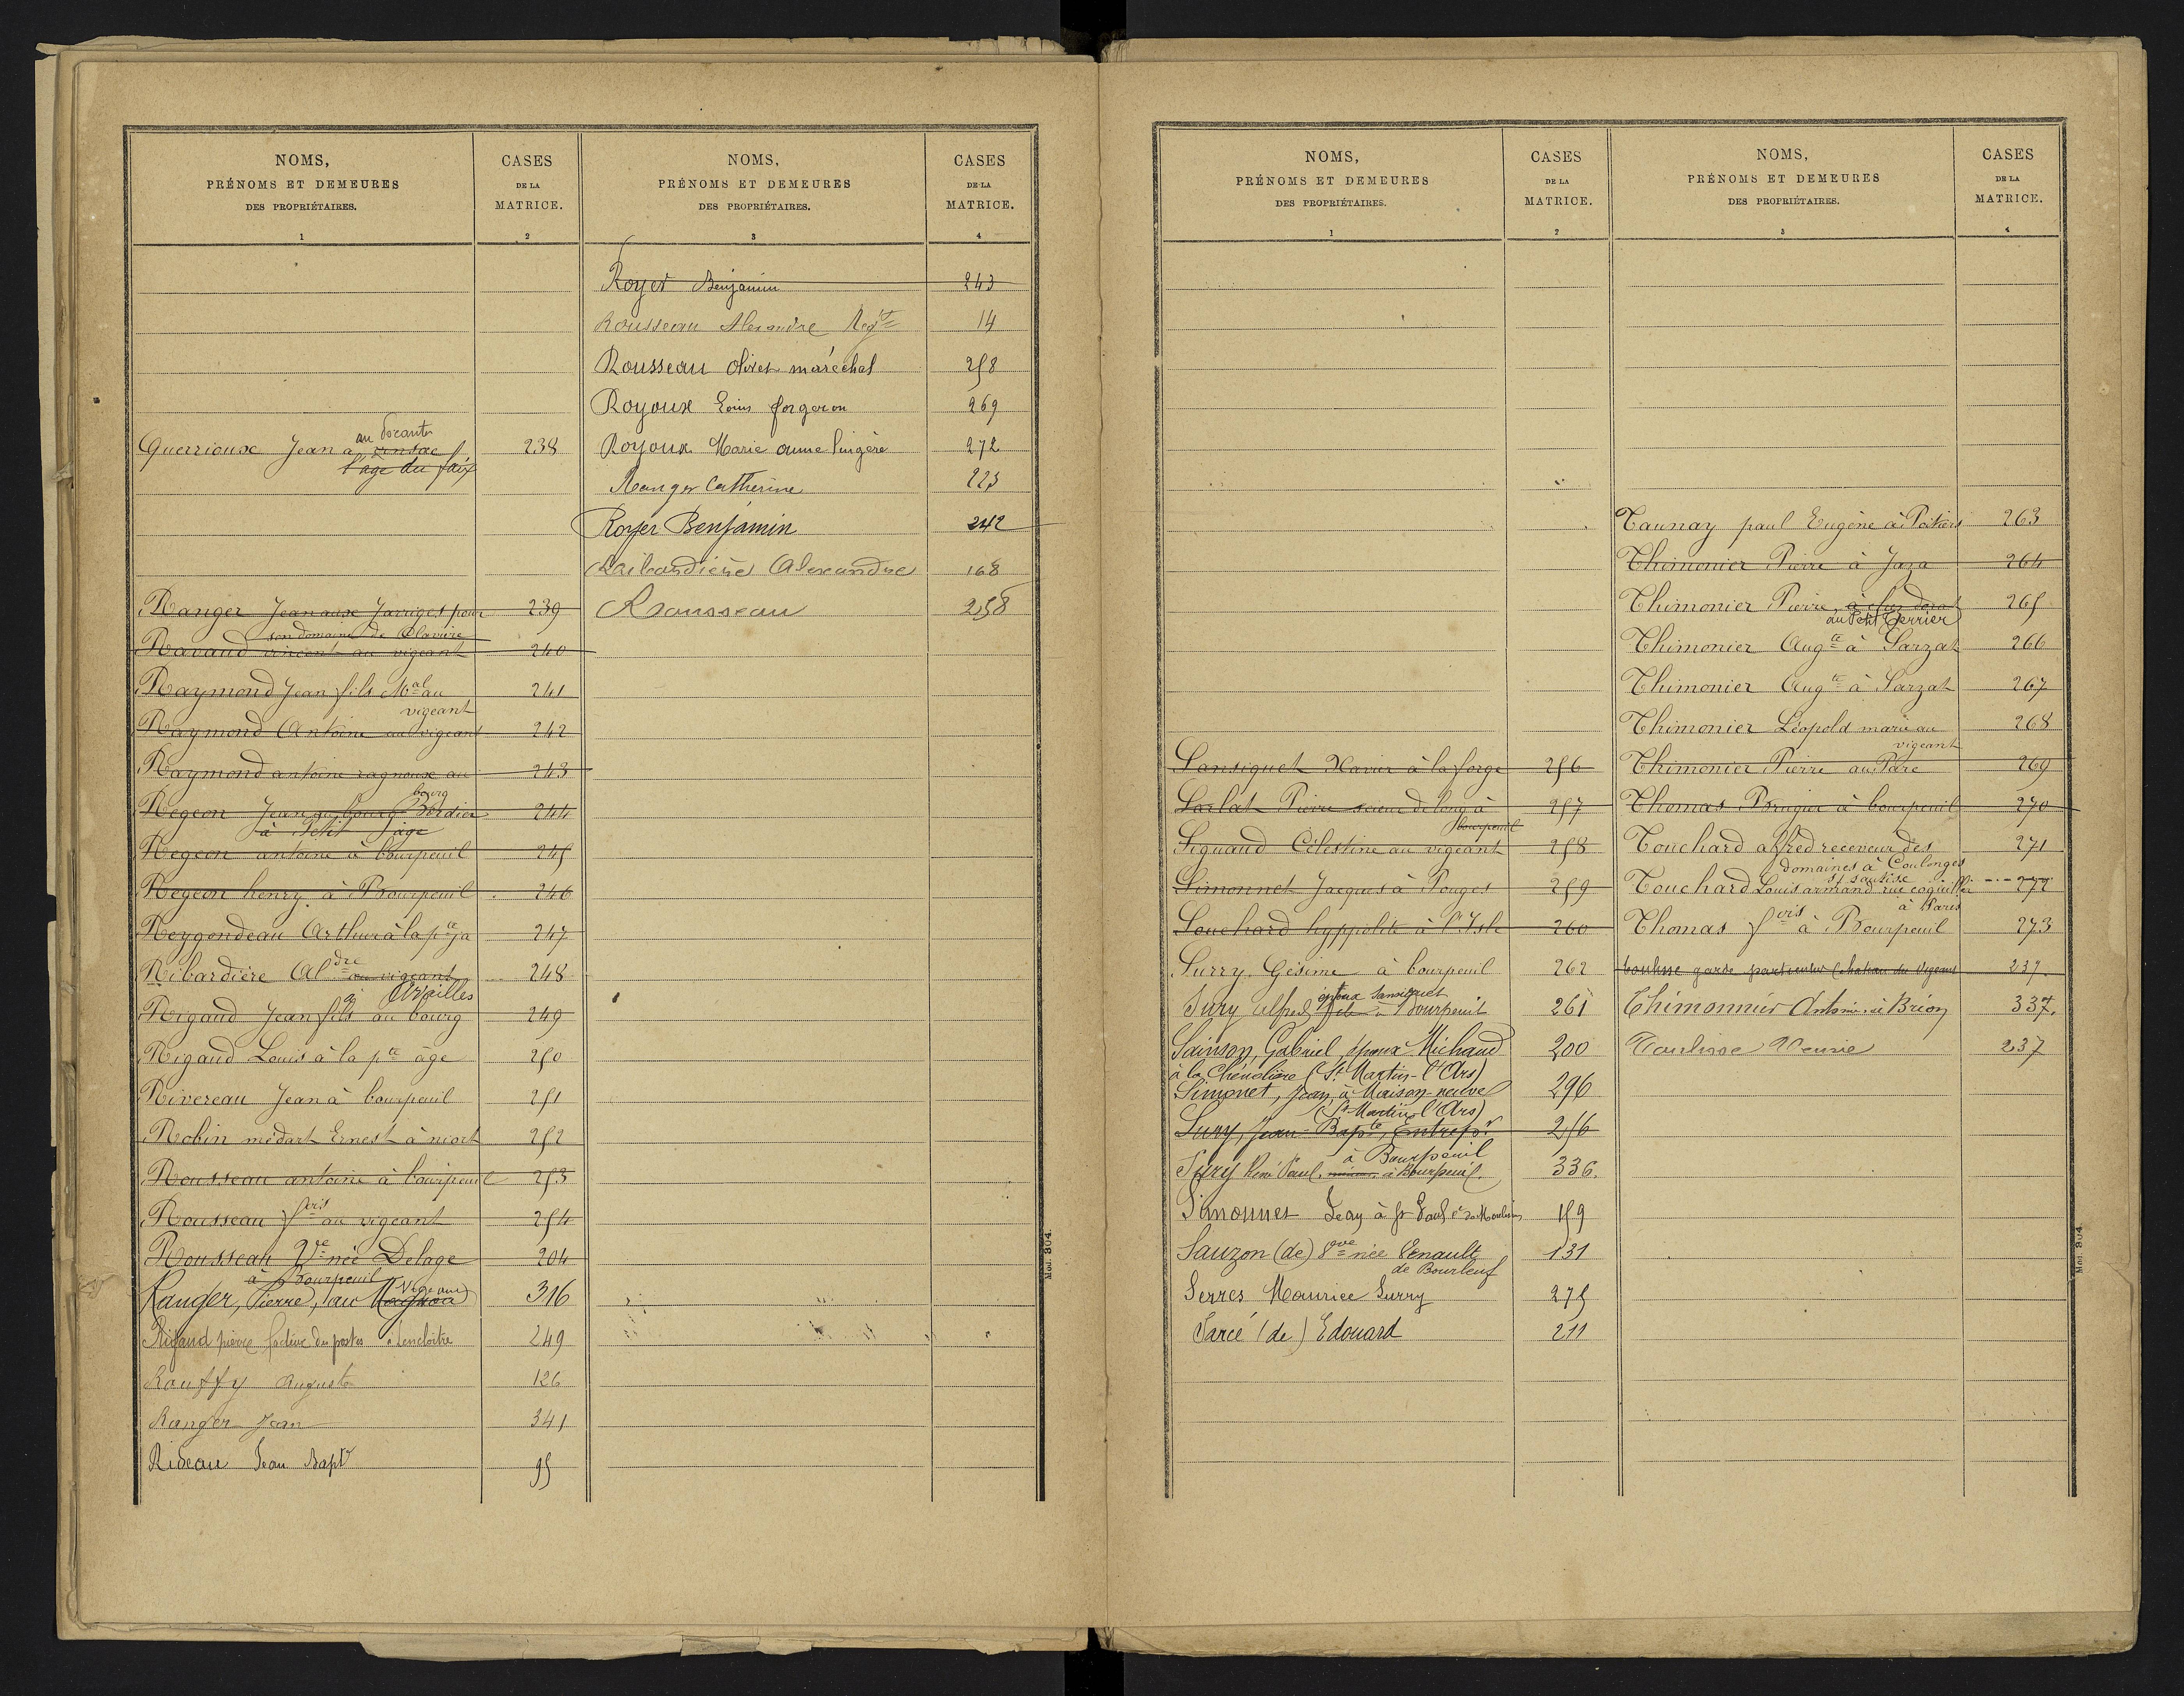 NOMS,
PRÉNOMS ET DEMEURES
DES PROPRIÉTAIRES.
1
CASES
DE LA
MATRICE.
2
Querrioux Jean à ensac 238
l'age du faix
Ranger Jean aux Jarriges pour 239
son domaine de Clavière
Ravaud vincent au vigeant 240
Raymond Jean fils Mal au 241
vigeant
Raymond Antoine au vigeant 242
Raymond antoine ragnoux au 243
bourg
Regeon Jean au bourg Bordier 244
à Petit age
Regeon antoine à bourpeuil 245
Regeon henry à Bourpeuil 246
Reygondeau Arthur à la pte ja 247
Ribardière Aldre au vigeant 248
à Availles
Rigaud Jean fils au bourg 249
Rigaud Louis à la pte âge 250
Rivereau Jean à bourpeuil 251
Robin médart Ernest à niort 252
Rousseau antoine à bourpeuil 253
Rousseau fois au vigeant 254
Rousseau Vve née Delage 204
à Bourpeuil
Ranger, Pierre, au Vigeant 316
Rigaud pierre facteur des postes a Lencloitre 249
Rouffy Auguste 126
Ranger Jean 341
Rideau Jean Bapte 95
NOMS,
PRÉNOMS ET DEMEURES
DES PROPRIÉTAIRES.
3
CASES
DE LA
MATRICE.
4
Royer Benjamin 243
Rousseau Alexandre Negt 14
Rousseau Olivet maréchal 258
Royoux Louis forgeron 269
Royoux Marie anne lingère 272
Ranger Catherine 223
Royer Benjamin 242
Raibardière Alexandre 168
Rousseau 258
Mod. 304.
NOMS,
PRÉNOMS ET DEMEURES
DES PROPRIÉTAIRES.
1
CASES
DE LA
MATRICE.
2
Sansiquet Xavier à la forge 256
Sarlat Pierre scieur de long à 257
bourpeuil
Siguaud Célestine au vigeant 258
Simonnet Jacques à Pouges 259
Souchard hyppolite à l'Isle 260
Surry Gésime à bourpeuil 262
époux Sansiquet
Sury alfred fils à Bourpeuil 261
Sainson, Gabriel, époux Michaud 200
à la Chénolière (St Martin-l'Ars)
Simonet, Jean, à Maison-neuve 296
(St Martin l'Ars)
Sury, Jean Bapte, Entrepr 256
à Bourpeuil
Sury René Paul, à Bourpeuil. 336.
Simonnet Jean 159
Sauzon (de) Vve née Renault 131
de Bourleuf
Serres Maurice Surry 275
Sarcé (de) Edouard 211
NOMS,
PRÉNOMS ET DEMEURES
DES PROPRIÉTAIRES.
3
CASES
DE LA
MATRICE.
4
Taunay paul Eugène à Poitiers 263
Thimonier Pierre à Jaza 264
Thimonier Pierre, à chez dorat 265
au Petit Terrier
Thimonier Augte à Sarzat 266
Thimonier Augte à Sarzat 267
Thimonier Léopold marie au 268
vigeant
Thimonier Pierre au Parc 269
Thomas Brugier à bourpeuil 270
Touchard alfred receveur des 271
domaines à Coulonges
Touchard Louis armand rue 272
à Paris
Thomas fois à Bourpeuil 273
toulisse garde particulier Chateau du Vigeant 237.
Thimonnier Antoine à Brion 337.
Toulisse 237
Mod. 304.